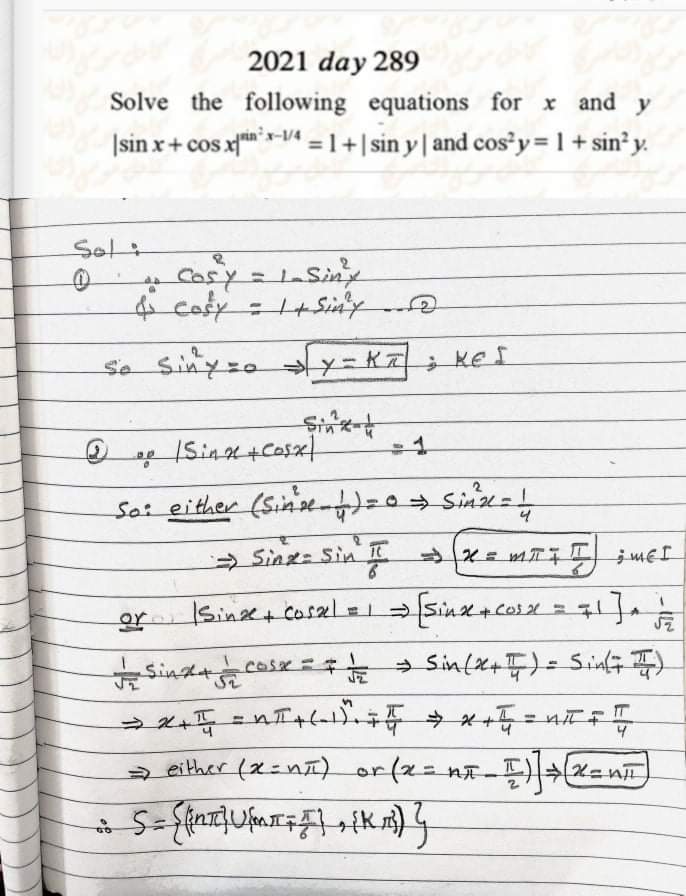 2021 day 289
Solve the following equations for x and y
|sin x + cos x|^{sin² x–1/4} = 1 + | sin y | and cos² y = 1 + sin² y.
Sol :
① ∵ Cos²y = 1 - Sin²y
& cos²y = 1 + Sin²y ---②
So Sin²y = 0 ⇒ y = Kπ ; K∈I
② ∵ |Sinx + Cosx|^{Sin²x - 1/4} = 1
So: either (Sin²x - 1/4) = 0 ⇒ Sin²x = 1/4
⇒ Sin²x = Sin² π/6 ⇒ x = mπ ∓ π/6 ; m∈I
or |Sinx + Cosx| = 1 ⇒ [Sinx + cosx = ∓1] * 1/√2
1/√2 Sinx + 1/√2 cosx = ∓ 1/√2 ⇒ Sin(x + π/4) = Sin(∓ π/4)
⇒ x + π/4 = nπ + (-1)ⁿ . ∓ π/4 ⇒ x + π/4 = nπ ∓ π/4
⇒ either (x = nπ) or (x = nπ - π/2)] ⇒ x = nπ
∴ S = {({nπ} ∪ {mπ ∓ π/6} , {Kπ})}